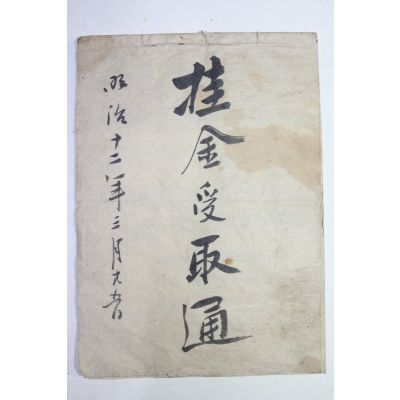 掛金受取通
明治十二年三月大吉日